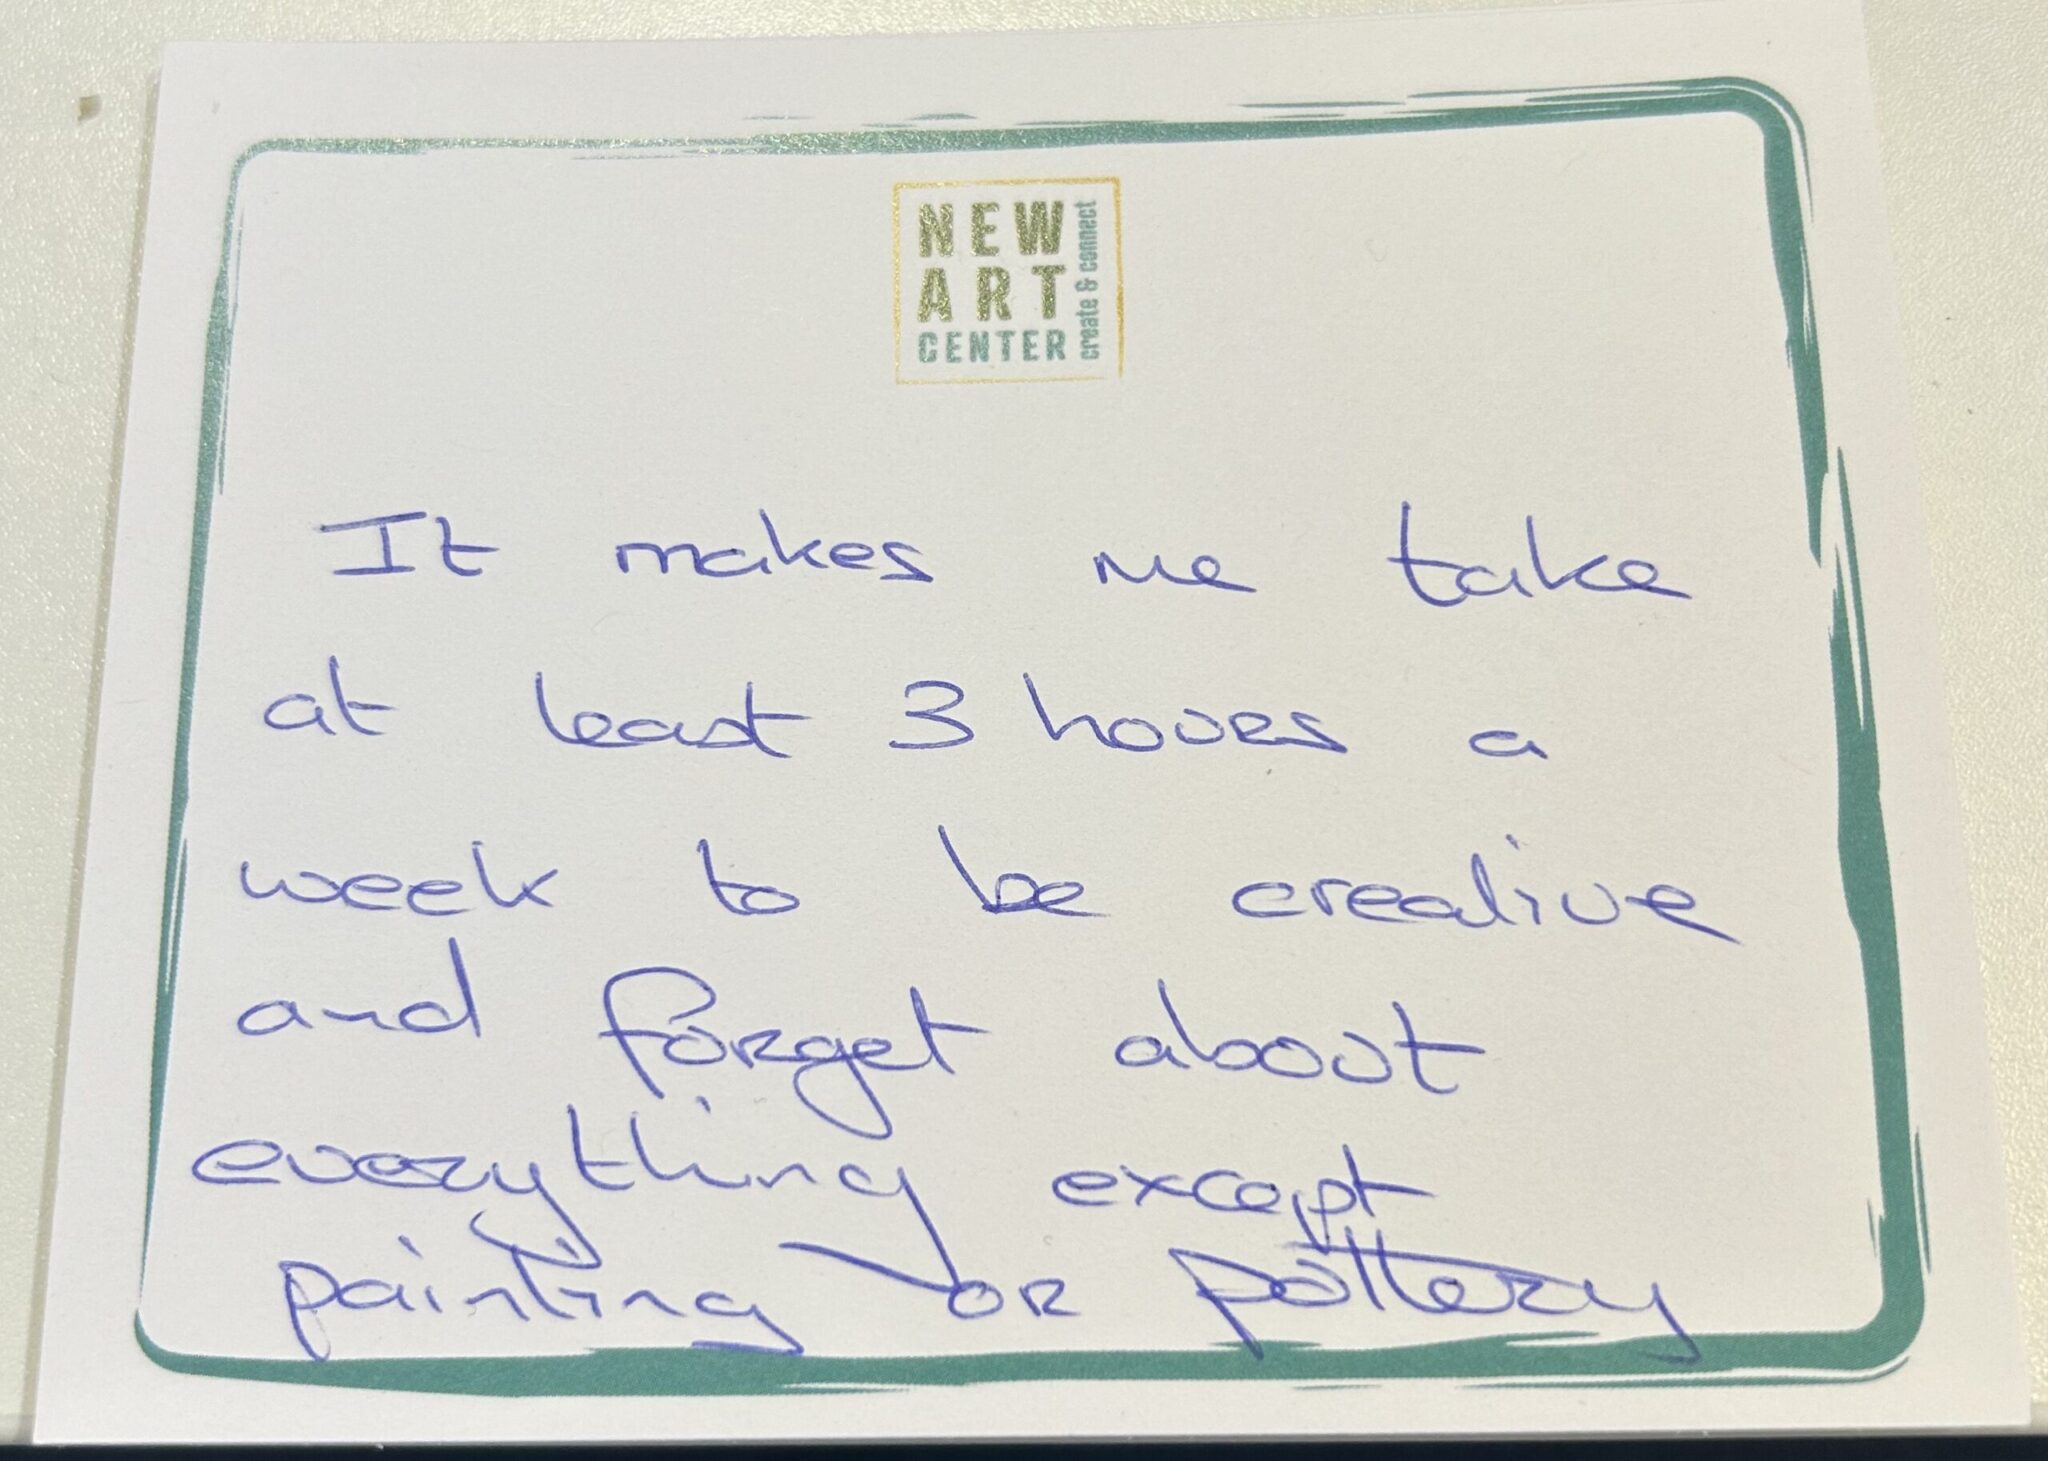 NEW
ART
CENTER
create & connect
It makes me take
at least 3 hours a
week to be creative
and forget about
everything except
painting or pottery